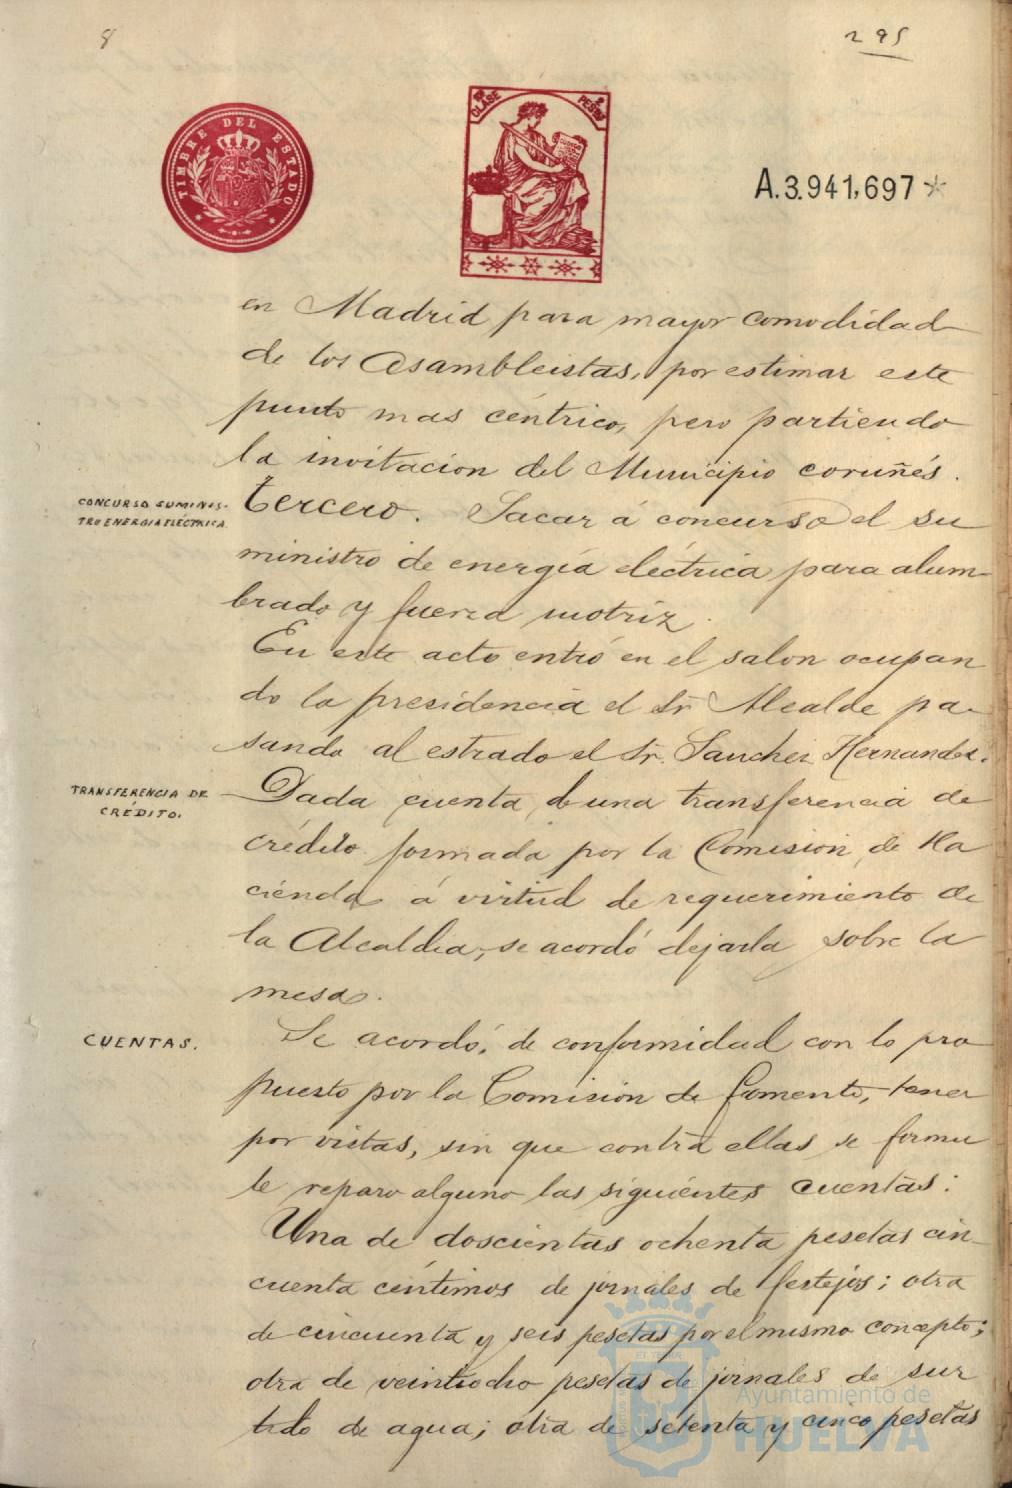 8
295
TIMBRE DEL ESTADO
CLASE
PESETAS
A.3.941,697 *
en Madrid para mayor comodidad
de los Asambleistas, por estimar este
punto mas céntrico, pero partiendo
la invitacion del Municipio coruñés.
CONCURSO SUMINIS-
TRO ENERGIA ELÉCTRICA
tercero. Sacar á concurso el su
ministro de energía eléctrica para alum-
brado y fuerza motriz.
En este acto entró en el salon ocupan
do la presidencia el Sr Alcalde pa-
sando al estrado el Sr. Sanchez Hernandez.
TRANSFERENCIA DE
CRÉDITO.
Dada cuenta de una transferencia de
crédito formada por la Comision de Ha
cienda á virtud de requerimiento de
la Alcaldia, se acordó dejarla sobre la
mesa.
CUENTAS.
Se acordó, de conformidad con lo pro
puesto por la Comisión de Fomento, tener
por vistas, sin que contra ellas se formu
le reparo alguno las siguientes cuentas:
Una de doscientas ochenta pesetas cin-
cuenta céntimos de jornales de festejos; otra
de cincuenta y seis pesetas por el mismo concepto;
otra de veintiocho pesetas de jornales de sur
tido de agua; otra de setenta y cinco pesetas
Ayuntamiento de
HUELVA